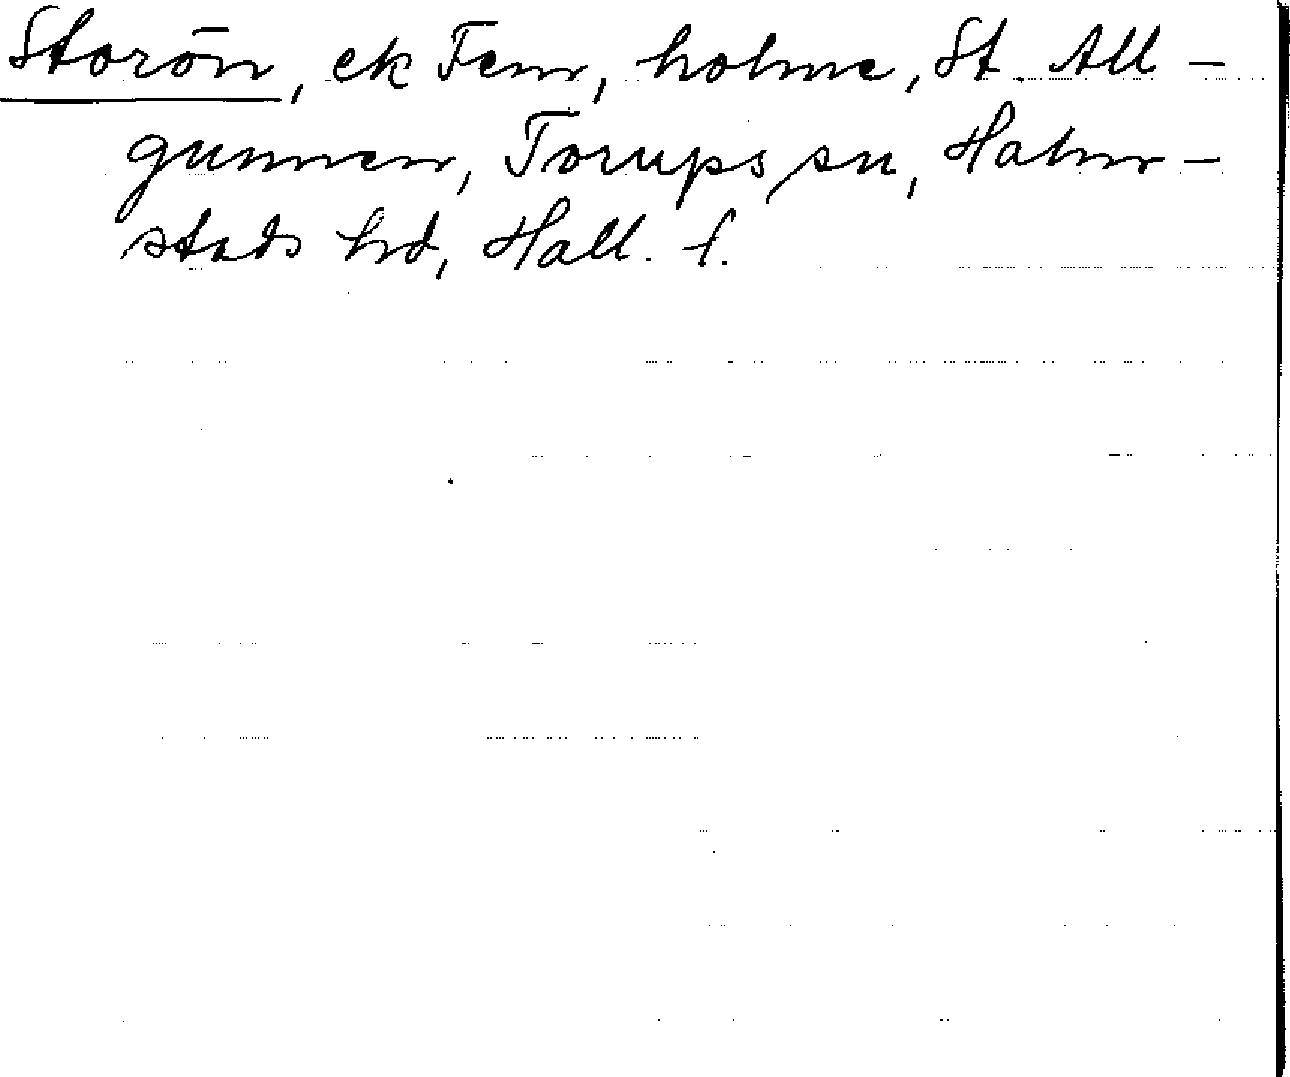 Storön, ek Fem, holme, St. All-
gunnen, Torups sn, Halm-
stads hd, Hall. l.